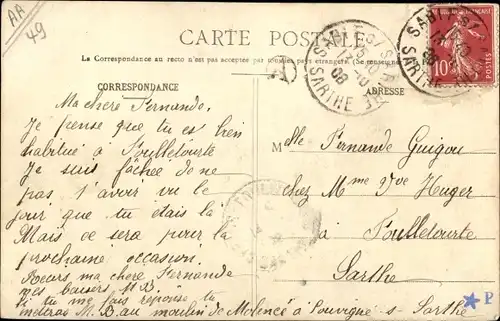 AA
49
CARTE POSTALE
La Correspondance au recto n'est pas acceptée par tous les pays étrangers. (Se renseigner
CORRESPONDANCE
ADRESSE
SARTHE
SARTHE
10
POSTES
Ma chère Fernande.
Je pense que tu es bien
habitué à Foulletourte
Je suis fâchée de ne
pas t'avoir vu le
jour que tu étais là
Mais ce sera pour la
prochaine occasion.
Reçois ma chère Fernande
mes baisers M B.
si tu me fais réponse tu
mettras M. B. au moulin de Molencé à Pouvigné-s-Sarthe
Melle Fernande Guigou
chez Mme Vve Heuger
à Foulletourte
Sarthe
P